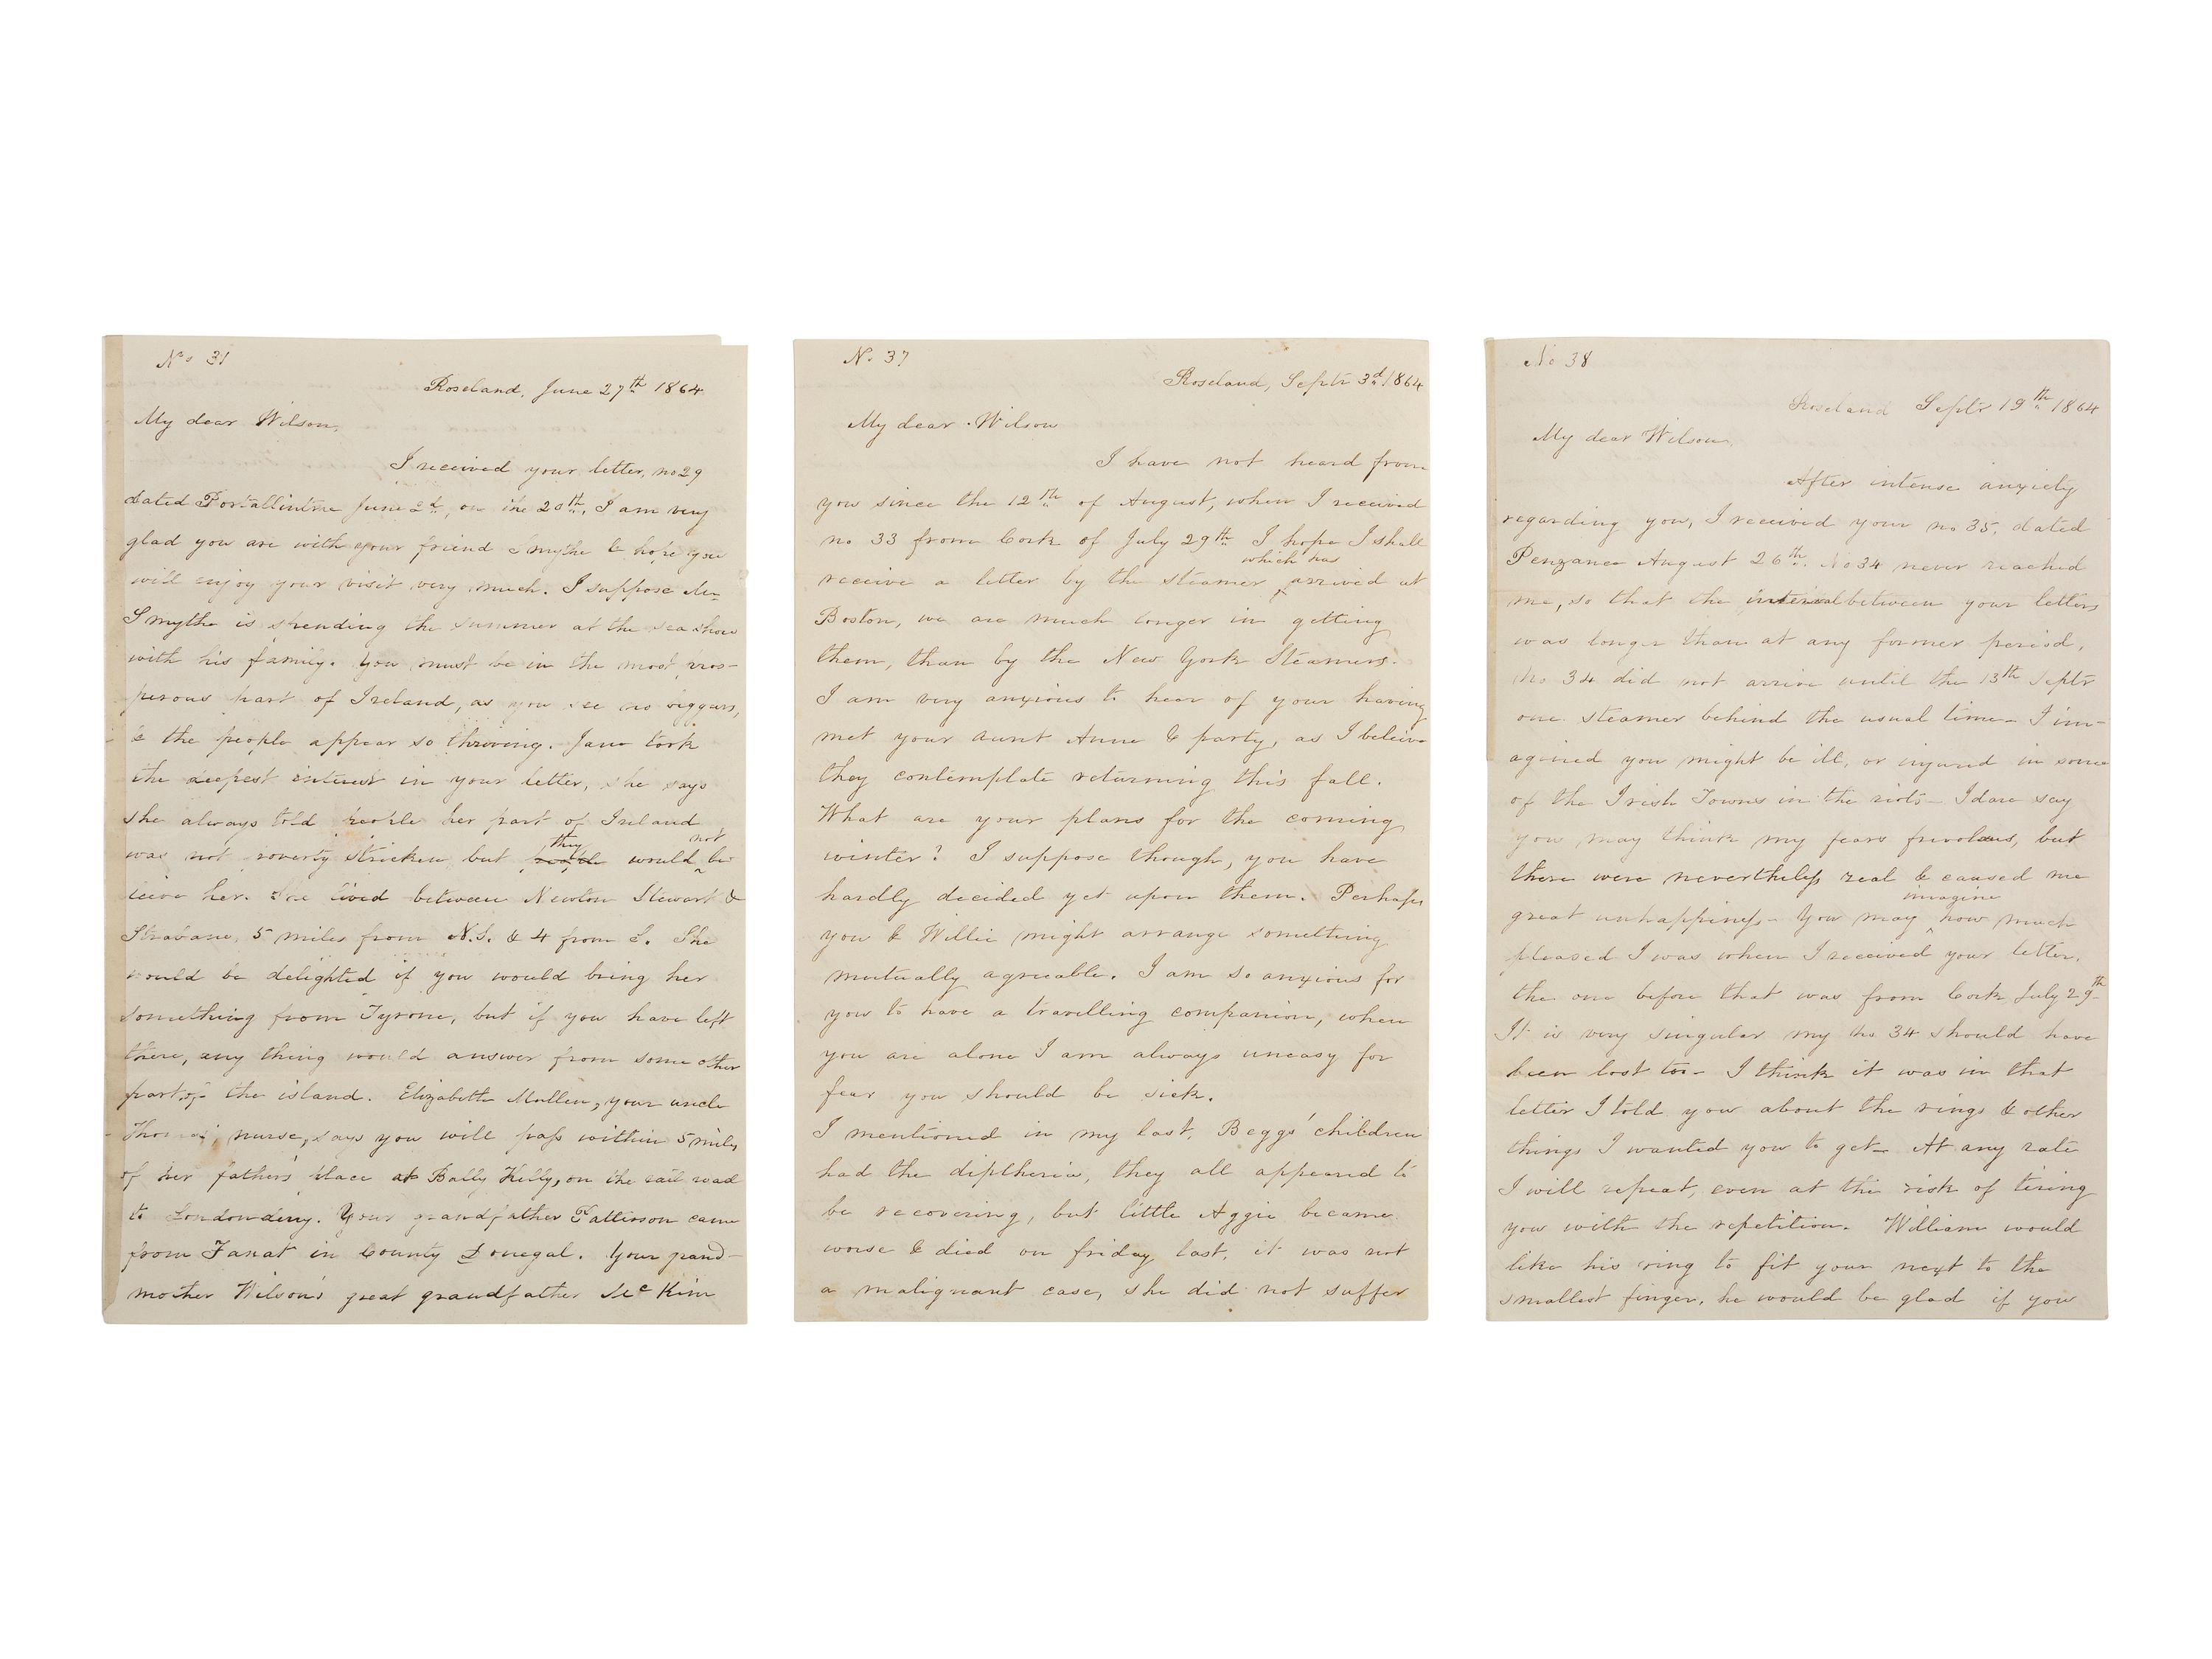 No 31
Roseland, June 27th 1864
My dear Wilson,
I received your letter, no 29
dated Portallintrae June 2d, on the 20th. I am very
glad you are with your friend Smythe & hope you
will enjoy your visit very much. I suppose Mr
Smythe is spending the summer at the sea shore
with his family. You must be in the most pros-
perous part of Ireland, as you see no beggars,
& the people appear so thriving. Jane took
the deepest interest in your letter, she says
she always told people her part of Ireland
was not poverty stricken, but they would not be-
leive her. She lived between Newton Stewart &
Strabane, 5 miles from N.S. & 4 from S. She
would be delighted if you would bring her
something from Tyrone, but if you have left
there, any thing would answer from some other
part of the island. Elizabeth Mullen, your uncle
Thomas' nurse, says you will pass within 5 miles
of her fathers place at Bally Kelly, on the rail road
to Londonderry. Your grandfather Patterson came
from Fanat in County Donegal. Your grand-
mother Wilson's great grandfather McKim
No. 37
Roseland, Septr 3d 1864
My dear Wilson
I have not heard from
you since the 12th of August, when I received
no 33 from Cork of July 29th I hope I shall
receive a letter by the steamer which has arrived at
Boston, we are much longer in getting
them, than by the New York Steamers.
I am very anxious to hear of your having
met your aunt Anne & party, as I beleive
they contemplate returning this fall.
What are your plans for the coming
winter? I suppose though, you have
hardly decided yet upon them. Perhaps
you & Willie might arrange something
mutually agreeable. I am so anxious for
you to have a travelling companion, when
you are alone I am always uneasy for
fear you should be sick.
I mentioned in my last, Beggs' children
had the diptheria, they all appeared to
be recovering, but little Aggie became
worse & died on friday last, it was not
a malignant case, she did not suffer
No 38
Roseland Septr 19th 1864
My dear Wilson,
After intense anxiety
regarding you, I received your no 35, dated
Penzance August 26th. No 34 never reached
me, so that the interval between your letters
was longer than at any former period,
No 34 did not arrive until the 13th Septr
one steamer behind the usual time - I im-
agined you might be ill, or injured in some
of the Irish Towns in the riots - I dare say
you may think my fears frivolous, but
there were nevertheless real & caused me
great unhappiness - You may imagine how much
pleased I was when I received your letter,
the one before that was from Cork July 29th
It is very singular my no 34 should have
been lost too - I think it was in that
letter I told you about the rings & other
things I wanted you to get - At any rate
I will repeat, even at the risk of tiring
you with the repetition. William would
like his ring to fit your next to the
smallest finger, he would be glad if you